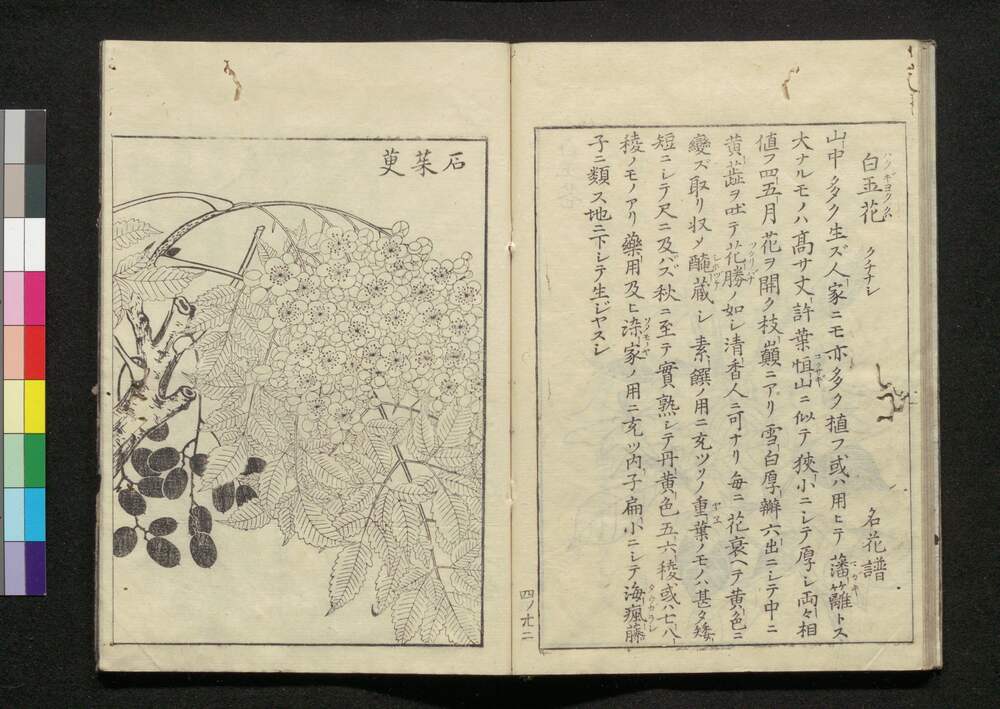 白玉花 クチナシ 名花譜
山中多ク生ズ人家ニモ亦多ク植フ或ハ用ヒテ藩籬トス
大ナルモノハ高サ丈許葉恒山ニ似テ狹小ニシテ厚シ両々相
値フ四五月花ヲ開ク枝巓ニアリ雪白厚瓣六出ニシテ中ニ
黄蕋ヲ吐テ花勝ノ如シ清香人ニ可ナリ毎ニ花衰ヘテ黄色ニ
變ズ取リ収メ醃蔵シ素饌ノ用ニ充ツソノ重葉ノモノハ甚タ矮
短ニシテ尺ニ及バズ秋ニ至テ實熟シテ丹黄色五六稜或ハ七八
稜ノモノアリ藥用及ヒ染家ノ用ニ充ツ内子扁小ニシテ海瘋藤
子ニ類ス地ニ下シテ生ジヤスシ
四ノ廿二
石茱萸